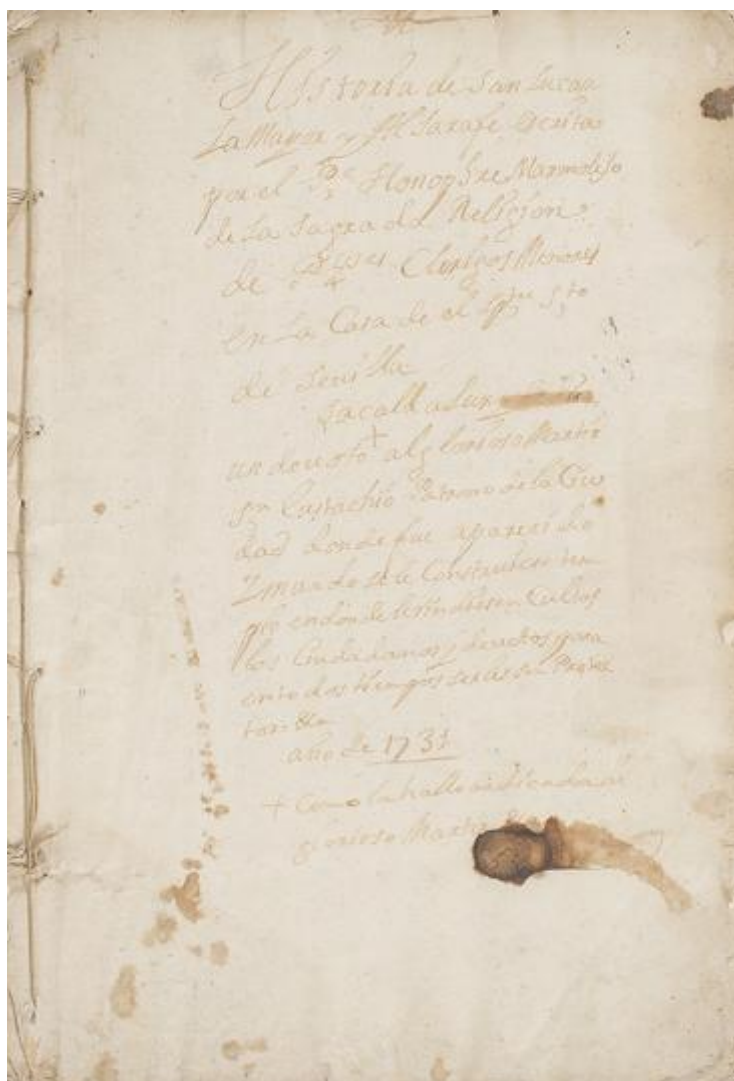 Historia de San Lucar
La Mayor y Alxarafe escrita
por el Pe Honophre Marmolejo
de La Sagrada Religion
de Clerigos Menores
en La Casa de el Spu Sto
de Sevilla
Sacalla a Luz
un devoto + al glorioso Martir
Sn Eustachio Patrono de la Ciu
dad donde fue aparecido
Y mando se le Construiese tem
plo en donde le rindiesen Cultos
los Ciudadanos y devotos para
en todos tiempos ser su Protec
tor &a
año de 1731
+ Como la hallo dedicada al
glorioso Martir